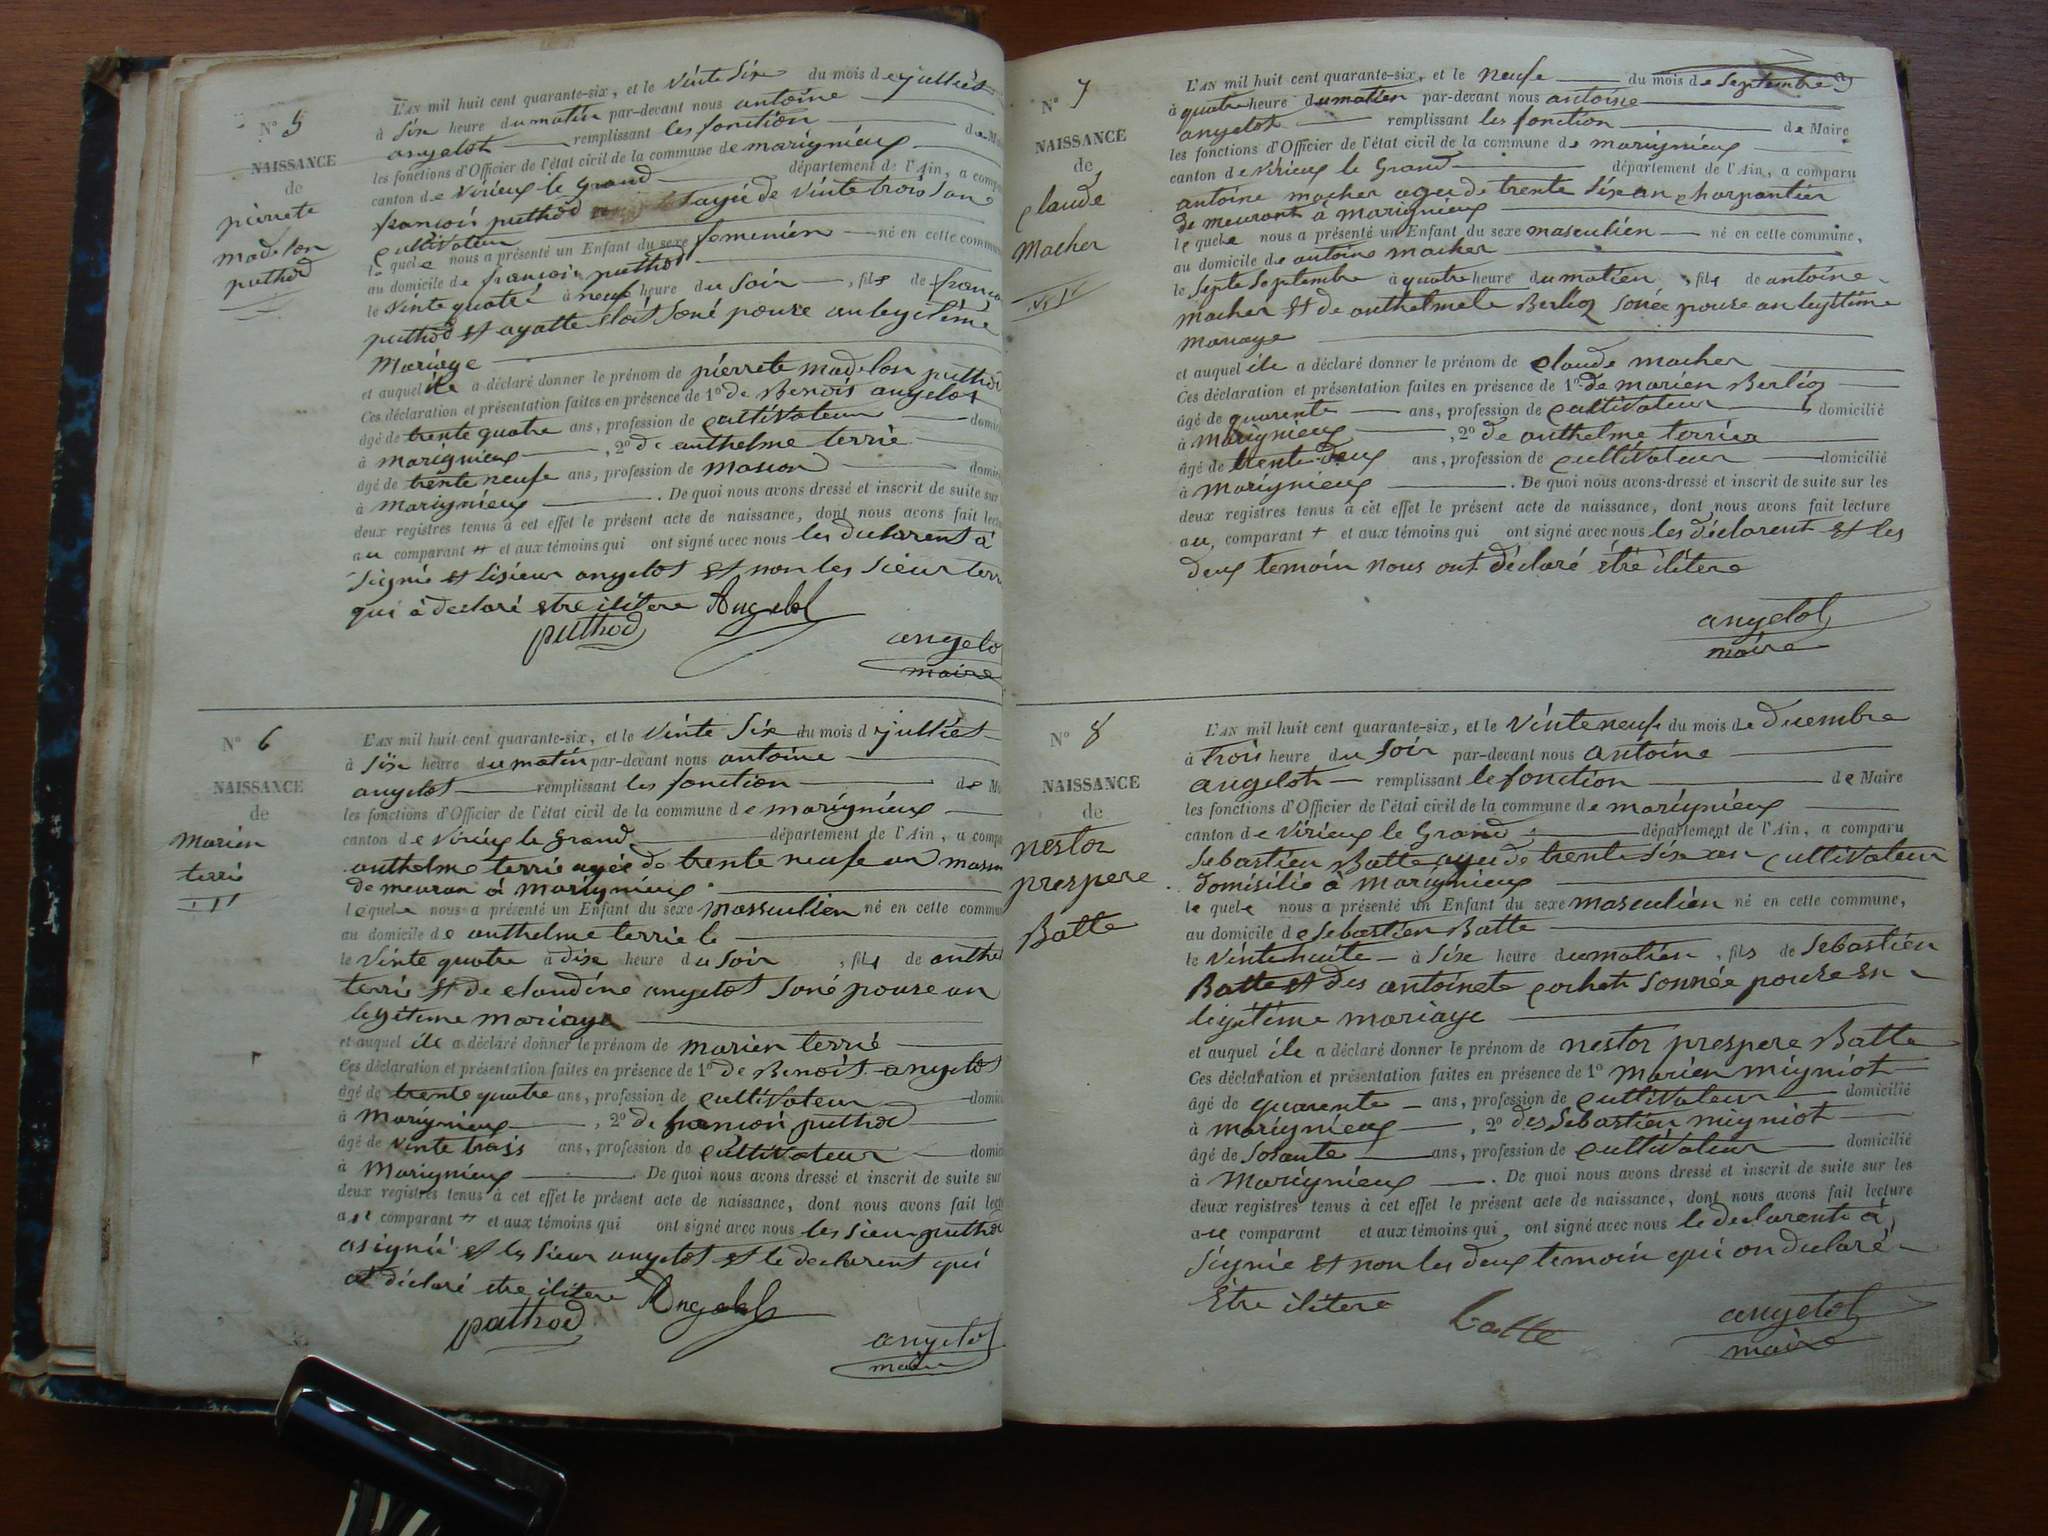 N° 5
NAISSANCE
de
pierrete
madelon
puthod
L'AN mil huit cent quarante-six, et le vinte six du mois de julliets
à six heure du matin par-devant nous antoine
angelot remplissant les fonction de
les fonctions d'Officier de l'état civil de la commune de marignieux
canton de virieux le grand département de l'Ain, a
françois puthod ageé de vinte trois
cultivateur
le quele nous a présenté un Enfant du sexe femenien né en cette
au domicile de françois puthod
le vinte quatre à neuf heure du soir, fils de
puthod et agatte
Mariage
et auquel ile a déclaré donner le prénom de pierrete madelon
Ces déclaration et présentation faites en présence de 1° de Benois angelot
âgé de trente quatre ans, profession de cultivateur
à marignieux, 2° de anthelme terrie
âgé de trente neufe ans, profession de masson
à marignieux. De quoi nous avons dressé et inscrit de suite sur
deux registres tenus à cet effet le présent acte de naissance, dont nous avons fait
au comparant et aux témoins qui ont signé avec nous les declarent à
signié et angelot et non les sieur
qui à declaré etre ilitere Angelot
puthod
angelot
maire
N° 6
NAISSANCE
de
Marien
terrie
L'AN mil huit cent quarante-six, et le vinte six du mois d julliet
à six heure du matin par-devant nous antoine
angelot remplissant les fonction de
les fonctions d'Officier de l'état civil de la commune de marignieux
canton de virieux le grand département de l'Ain, a
anthelme terrie ageé de trente neufe an
de meuran à marignieux
lequele nous a présenté un Enfant du sexe Massculien né en cette
au domicile de anthelme terrie le
le vinte quatre à dixe heure du soir, fils de
terrie et de claudine angelot soné pouse an
legitime mariage
et auquel ile a déclaré donner le prénom de marien terrié
Ces déclaration et présentation faites en présence de 1° de Benoit angelot
âgé de trente quatre ans, profession de cultivateur
à Marignieux, 2° de françois puthod
âgé de vinte trois ans, profession de cultivateur
à Marignieux. De quoi nous avons dressé et inscrit de suite sur
deux registres tenus à cet effet le présent acte de naissance, dont nous avons fait
au comparant et aux témoins qui ont signé avec nous les sieur
a signié et les sieur angelot et le declarent qui
at déclaré etre ilitere Angelot
puthod
angelot
maire
N° 7
NAISSANCE
de
claude
Macher
L'AN mil huit cent quarante-six, et le neufe du mois de septembre
à quatre heure du matien par-devant nous antoine
angelot remplissant les fonction de Maire
les fonctions d'Officier de l'état civil de la commune de marignieux
canton de virieux le Grand département de l'Ain, a comparu
antoine macher ageé de trente sixe an charpantier
de meurant à Marignieux
le quele nous a présenté un Enfant du sexe masculien né en cette commune,
au domicile de antoine macher
le septe septembre à quatre heure du matien, fils de antoine
macher et de anthelmete Berlioz sonée pouse an legitime
mariage
et auquel ile a déclaré donner le prénom de claude macher
Ces déclaration et présentation faites en présence de 1° de marien Berlioz
âgé de quarente ans, profession de cultivateur domicilié
à Marignieux, 2° de anthelme terrier
âgé de trente deux ans, profession de cultivateur domicilié
à Marignieux. De quoi nous avons dressé et inscrit de suite sur les
deux registres tenus à cet effet le présent acte de naissance, dont nous avons fait lecture
au comparant et aux témoins qui ont signé avec nous les déclarent et les
deux temoin nous ont déclaré étre ilitere
angelot
maire
N° 8
NAISSANCE
de
nestor
prespere
Batte
L'AN mil huit cent quarante-six, et le vinte neufe du mois de decembre
à trois heure du soir par-devant nous antoine
angelot remplissant le fonction de Maire
les fonctions d'Officier de l'état civil de la commune de marignieux
canton de virieux le Grand département de l'Ain, a comparu
sebastien Batte ageé de trente sixe an cultivateur
domisilié à Marignieux
le quele nous a présenté un Enfant du sexe masculién né en cette commune,
au domicile de sebastien Batte
le vinte huite à sixe heure du matien, fils de sebastien
Batte et des antoinete cochet sonnée pouse en
legitime mariage
et auquel ile a déclaré donner le prénom de nestor prespere Batte
Ces déclaration et présentation faites en présence de 1° Marien migniot
âgé de quarente ans, profession de cultivateur domicilié
à marignieux, 2° des sebastien migniot
âgé de sosante ans, profession de cultivateur domicilié
à Marignieux. De quoi nous avons dressé et inscrit de suite sur les
deux registres tenus à cet effet le présent acte de naissance, dont nous avons fait lecture
au comparant et aux témoins qui ont signé avec nous le declarent à
signié et non les deux temoin qui on declaré
être ilitere
batte
angelot
maire